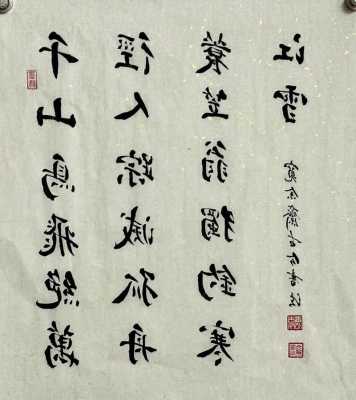 千山鳥飛絕萬
徑人踪滅孤舟
蓑笠翁獨釣寒
江雪
余齋書